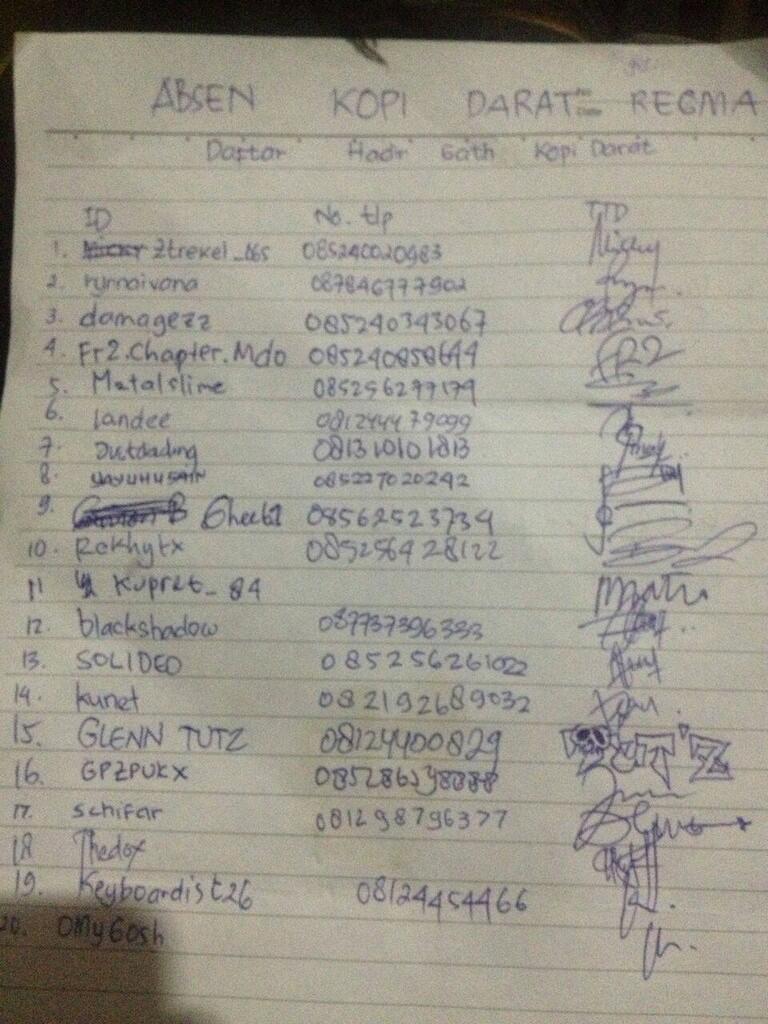 ABSEN KOPI DARAT REGMA
Daftar Hadir Gath Kopi Darat
ID No. tlp TTD
1. Ztrekel_666 085240020983
2. rynnaivana 087846777902
3. damagezz 085240343067
4. Fr2.Chapter.Mdo 085240858644 FR2
5. Metalslime 085256299179
6. landee 081244479099
7. Justdading 081310101813
8. 085227020242
9. 08562523734
10. Rekhytx 085256428122
11 Kupret_84
12. blackshadow 087737396333
13. SOLIDEO 085256261022
14. kunet 082192689032
15. GLENN TUTZ 08124400829 TUT'Z
16. GPZPUKX
17. schifar 081298796377
18 Thedox
19. Keyboardist26 08124454466
20. OMyGosh